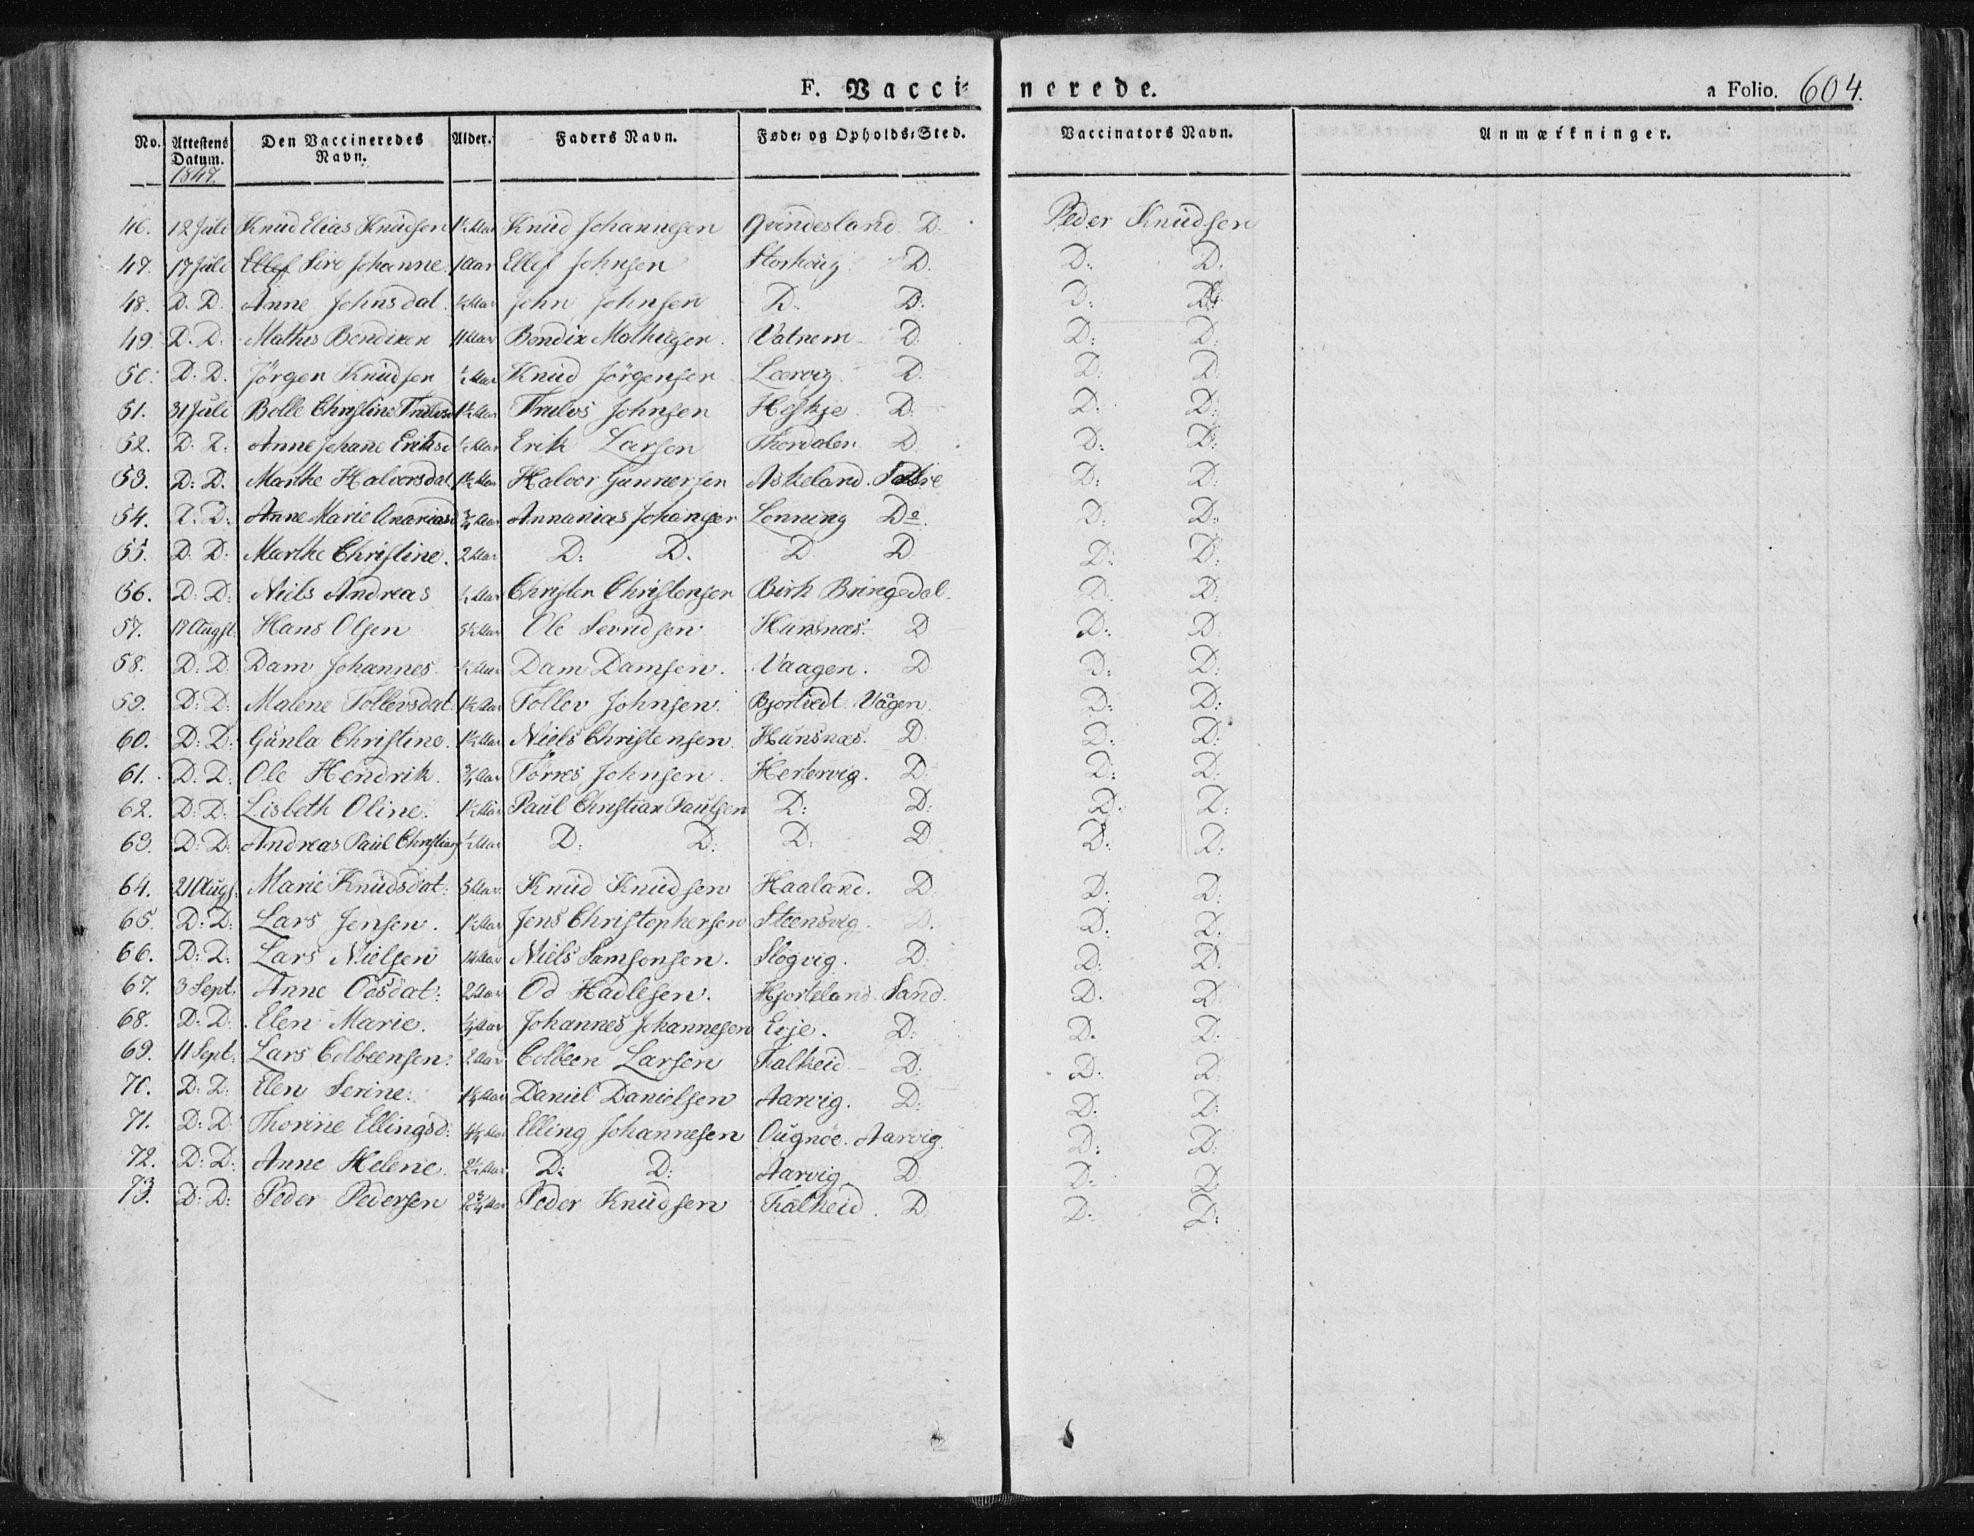 F. Vaccinerede. a Folio. 604.
No. Attestens Datum. 1847. Den Vaccineredes Navn. Alder. Faders Navn. Føde- og Opholds-Sted. Vaccinators Navn. Anmærkninger.
46. 12 Juli Knud Elias Knudsen 1½ Aar Knud Johannesen Qvindesland D. Peder Knudsen
47. 17 Juli Siri Johanne. 1 Aar Ellef Johnsen Storhoug D. D: D.
48. D. D. Anne Johnsdat. ½ Aar John Johnsen D. D. D: D.
49. D. D. Mathis Bendixen 11 Aar Bendix Mathiesen. Vatnem D. D: D.
50. D. D. Jörgen Knudsen ½ Aar Knud Jörgensen Lœrvig. D. D: D.
51. 31 Juli Bolle Christine Trulsd 1½ Aar Truls Johnsen Höjkje. D. D: D.
52. D. D. Anne Johane Eriksd ½ Aar Erik Larsen Thordalen D. D: D.
53. D: D. Marthe Halvorsdat. 1½ Aar Halvor Gunnersen Askeland. D: D.
54. D. D: Anne Marie Ananiasd ¾ Aar Annanias Johansen Lonning Do. D: D:
55. D. D. Marthe Christine. 2 Aar D: D. D. D. D: D:
56. D: D: Niels Andreas ½ Aar Christen Christensen Birk Bringedal. D: D:
57. 17 Augst. Hans Olsen 5½ Aar Ole Sevridsen Hunsnæs. D D: D.
58. D: D. Dam Johannes. ½ Aar Dam Damsen. Vaagen. D D: D.
59. D: D: Malene Tollevsdat. 1½ Aar Tollev Johnsen. Bjortvedt. Vågen. D: D:
60. D: D: Gunla Christine. 1½ Aar Niels Christensen. Hunsnæs. D. D: D:
61. D: D: Ole Hendrik. ¾ Aar Törres Johnsen. Hertervig. D. D: D:
62. D: D: Lisbeth Oline. 1½ Aar Paul Christian Paulsen D: D: D: D:
63. D: D: Andreas Paul Christian ½ Aar D: D: D: D D: D:
64. 21 Augs. Marie Knudsdat. 5 Aar. Knud Knudsen Haaland. D. D: D:
65. D: D: Lars Jensen. 1½ Aar Jens Christophersen Steensvig. D. D: D.
66. D: D: Lars Nielsen 14 Aar Niels Samsonsen. Slogvig. D. D: D.
67. 3 Sept. Anne Odsdat: 2 Aar Od Hadlesen. Hjorteland. Sand. D. D.
68. D: D. Elen Marie. ¼ Aar Johannes Johannesen Erje. D: D. D:
69. 11 Sept. Lars Colbeensen: 2 Aar Colbeen Larsen Falkeid D: D: D.
70. D: D: Elen Serine. 1¼ Aar Daniel Danielsen Aarvig. D: D. D:
71. D: D. Thorine Ellingsd: 4½ Aar Elling Johannesen Ougnöe. Aarvig. D: D:
72. D: D: Anne Helene. 2½ Aar D: D: Aarvig D. D: D.
73. D: D: Peder Pedersen 2¾ Aar Peder Knudsen Falkeid. D. D: D: